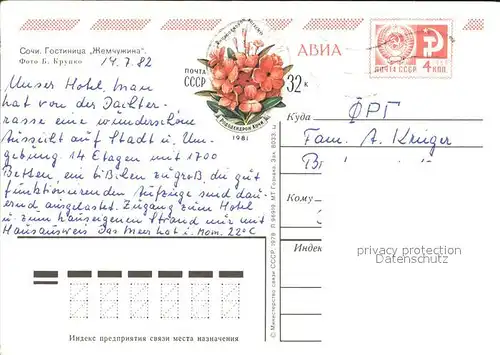 Сочи. Гостиница „Жемчужина".
Фото Б. Крупко
14.7.82
АВИА
ПОЧТА
СССР
32 к
1981
ПОЧТА СССР
4 коп
Unser Hotel, man
hat von der Dachter-
rasse eine wunderschöne
Aussicht auf Stadt u. Um-
gebung. 14 Etagen mit 1700
Betten, ein bißchen zu groß, die gut
funktionierenden Aufzüge sind dau-
ernd ausgelastet. Zugang zum Hotel
u. zum hauseigenen Strand nur mit
Hausausweis. Das Meer hat i. Mom. 22°C
Куда
ФРГ
Fam. A. Krüger
Кому
Индекс
privacy protection
Datenschutz
© Министерство связи СССР. 1979
МТ Гознака. Зак. 8033.
Индекс предприятия связи места назначения